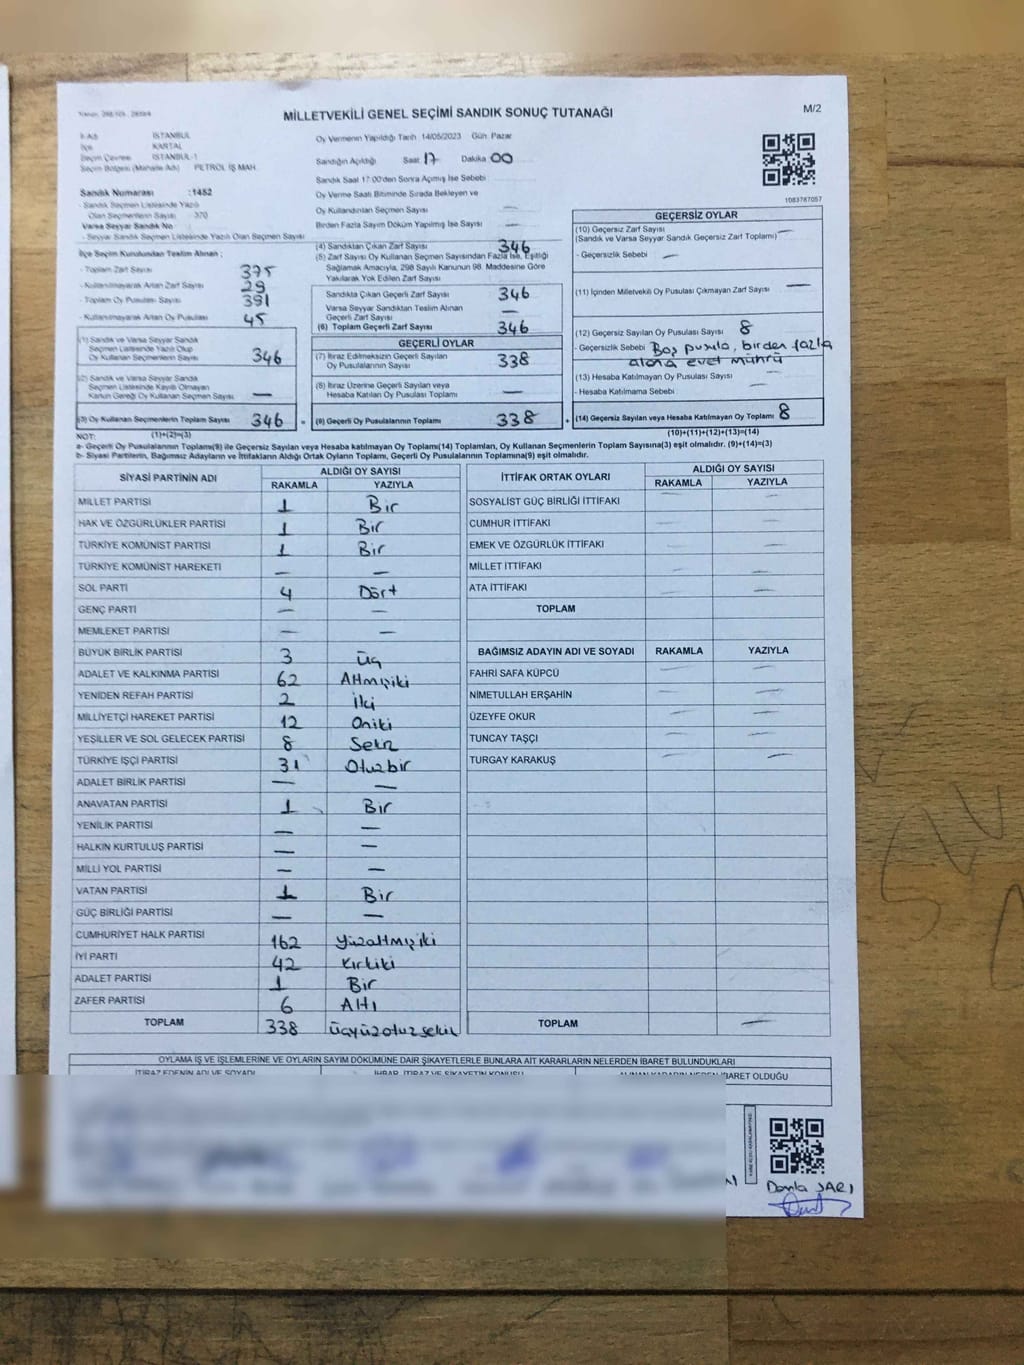 MİLLETVEKİLİ GENEL SEÇİMİ SANDIK SONUÇ TUTANAĞI
M/2
İl Adı İSTANBUL
İlçe KARTAL
Seçim Çevresi İSTANBUL-1
Seçim Bölgesi (Mahalle Adı) PETROL İŞ MAH.
Sandık Numarası :1452
- Sandık Seçmen Listesinde Yazılı
Olan Seçmenlerin Sayısı : 370
Varsa Seyyar Sandık No :
- Seyyar Sandık Seçmen Listesinde Yazılı Olan Seçmen Sayısı :
İlçe Seçim Kurulundan Teslim Alınan ;
- Toplam Zarf Sayısı 375
- Kullanılmayarak Artan Zarf Sayısı 29
- Toplam Oy Pusulası Sayısı 391
- Kullanılmayarak Artan Oy Pusulası 45
(1) Sandık ve Varsa Seyyar Sandık
Seçmen Listesinde Yazılı Olup
Oy Kullanan Seçmenlerin Sayısı 346
(2) Sandık ve Varsa Seyyar Sandık
Seçmen Listesinde Kayıtlı Olmayan
Kanun Gereği Oy Kullanan Seçmen Sayısı —
(3) Oy Kullanan Seçmenlerin Toplam Sayısı 346
Oy Vermenin Yapıldığı Tarih 14/05/2023 Gün Pazar
Sandığın Açıldığı Saat 17 Dakika 00
Sandık Saat 17:00'den Sonra Açılmış İse Sebebi
Oy Verme Saati Bitiminde Sırada Bekleyen ve
Oy Kullandırılan Seçmen Sayısı —
Birden Fazla Sayım Döküm Yapılmış İse Sayısı —
(4) Sandıktan Çıkan Zarf Sayısı 346
(5) Zarf Sayısı Oy Kullanan Seçmen Sayısından Fazla İse, Eşitliği
Sağlamak Amacıyla, 298 Sayılı Kanunun 98. Maddesine Göre
Yakılarak Yok Edilen Zarf Sayısı
Sandıkta Çıkan Geçerli Zarf Sayısı 346
Varsa Seyyar Sandıktan Teslim Alınan
Geçerli Zarf Sayısı —
(6) Toplam Geçerli Zarf Sayısı 346
GEÇERLİ OYLAR
(7) İtiraz Edilmeksizin Geçerli Sayılan
Oy Pusulasının Sayısı 338
(8) İtiraz Üzerine Geçerli Sayılan veya
Hesaba Katılan Oy Pusulası Toplamı —
= (9) Geçerli Oy Pusulalarının Toplamı 338
1083787057
GEÇERSİZ OYLAR
(10) Geçersiz Zarf Sayısı —
(Sandık ve Varsa Seyyar Sandık Geçersiz Zarf Toplamı)
- Geçersizlik Sebebi —
(11) İçinden Milletvekili Oy Pusulası Çıkmayan Zarf Sayısı —
(12) Geçersiz Sayılan Oy Pusulası Sayısı 8
- Geçersizlik Sebebi Boş pusula, birden fazla
alana evet mührü
(13) Hesaba Katılmayan Oy Pusulası Sayısı —
- Hesaba Katılmama Sebebi —
+ (14) Geçersiz Sayılan veya Hesaba Katılmayan Oy Toplamı 8
NOT: (1)+(2)=(3) (10)+(11)+(12)+(13)=(14)
a- Geçerli Oy Pusulalarının Toplamı(9) ile Geçersiz Sayılan veya Hesaba katılmayan Oy Toplamı(14) Toplamları, Oy Kullanan Seçmenlerin Toplam Sayısına(3) eşit olmalıdır. (9)+(14)=(3)
b- Siyasi Partilerin, Bağımsız Adayların ve İttifakların Aldığı Ortak Oyların Toplamı, Geçerli Oy Pusulalarının Toplamına(9) eşit olmalıdır.
SİYASİ PARTİNİN ADI ALDIĞI OY SAYISI
RAKAMLA YAZIYLA
MİLLET PARTİSİ 1 Bir
HAK VE ÖZGÜRLÜKLER PARTİSİ 1 Bir
TÜRKİYE KOMÜNİST PARTİSİ 1 Bir
TÜRKİYE KOMÜNİST HAREKETİ — —
SOL PARTİ 4 Dört
GENÇ PARTİ — —
MEMLEKET PARTİSİ — —
BÜYÜK BİRLİK PARTİSİ 3 Üç
ADALET VE KALKINMA PARTİSİ 62 Altmışiki
YENİDEN REFAH PARTİSİ 2 İki
MİLLİYETÇİ HAREKET PARTİSİ 12 Oniki
YEŞİLLER VE SOL GELECEK PARTİSİ 8 Sekiz
TÜRKİYE İŞÇİ PARTİSİ 31 Otuzbir
ADALET BİRLİK PARTİSİ — —
ANAVATAN PARTİSİ 1 Bir
YENİLİK PARTİSİ — —
HALKIN KURTULUŞ PARTİSİ — —
MİLLİ YOL PARTİSİ — —
VATAN PARTİSİ 1 Bir
GÜÇ BİRLİĞİ PARTİSİ — —
CUMHURİYET HALK PARTİSİ 162 Yüzaltmışiki
İYİ PARTİ 42 Kırkiki
ADALET PARTİSİ 1 Bir
ZAFER PARTİSİ 6 Altı
TOPLAM 338 Üçyüzotuzsekiz
İTTİFAK ORTAK OYLARI ALDIĞI OY SAYISI
RAKAMLA YAZIYLA
SOSYALİST GÜÇ BİRLİĞİ İTTİFAKI — —
CUMHUR İTTİFAKI — —
EMEK VE ÖZGÜRLÜK İTTİFAKI — —
MİLLET İTTİFAKI — —
ATA İTTİFAKI — —
TOPLAM
BAĞIMSIZ ADAYIN ADI VE SOYADI RAKAMLA YAZIYLA
FAHRİ SAFA KÜPCÜ — —
NİMETULLAH ERŞAHİN — —
ÜZEYFE OKUR — —
TUNCAY TAŞÇI — —
TURGAY KARAKUŞ — —
TOPLAM —
OYLAMA İŞ VE İŞLEMLERİNE VE OYLARIN SAYIM DÖKÜMÜNE DAİR ŞİKAYETLERLE BUNLARA AİT KARARLARIN NELERDEN İBARET BULUNDUKLARI
İTİRAZ EDENİN ADI VE SOYADI İHBAR, İTİRAZ VE ŞİKAYETİN KONUSU ALINAN KARARIN NEDEN İBARET OLDUĞU
Damla SARI